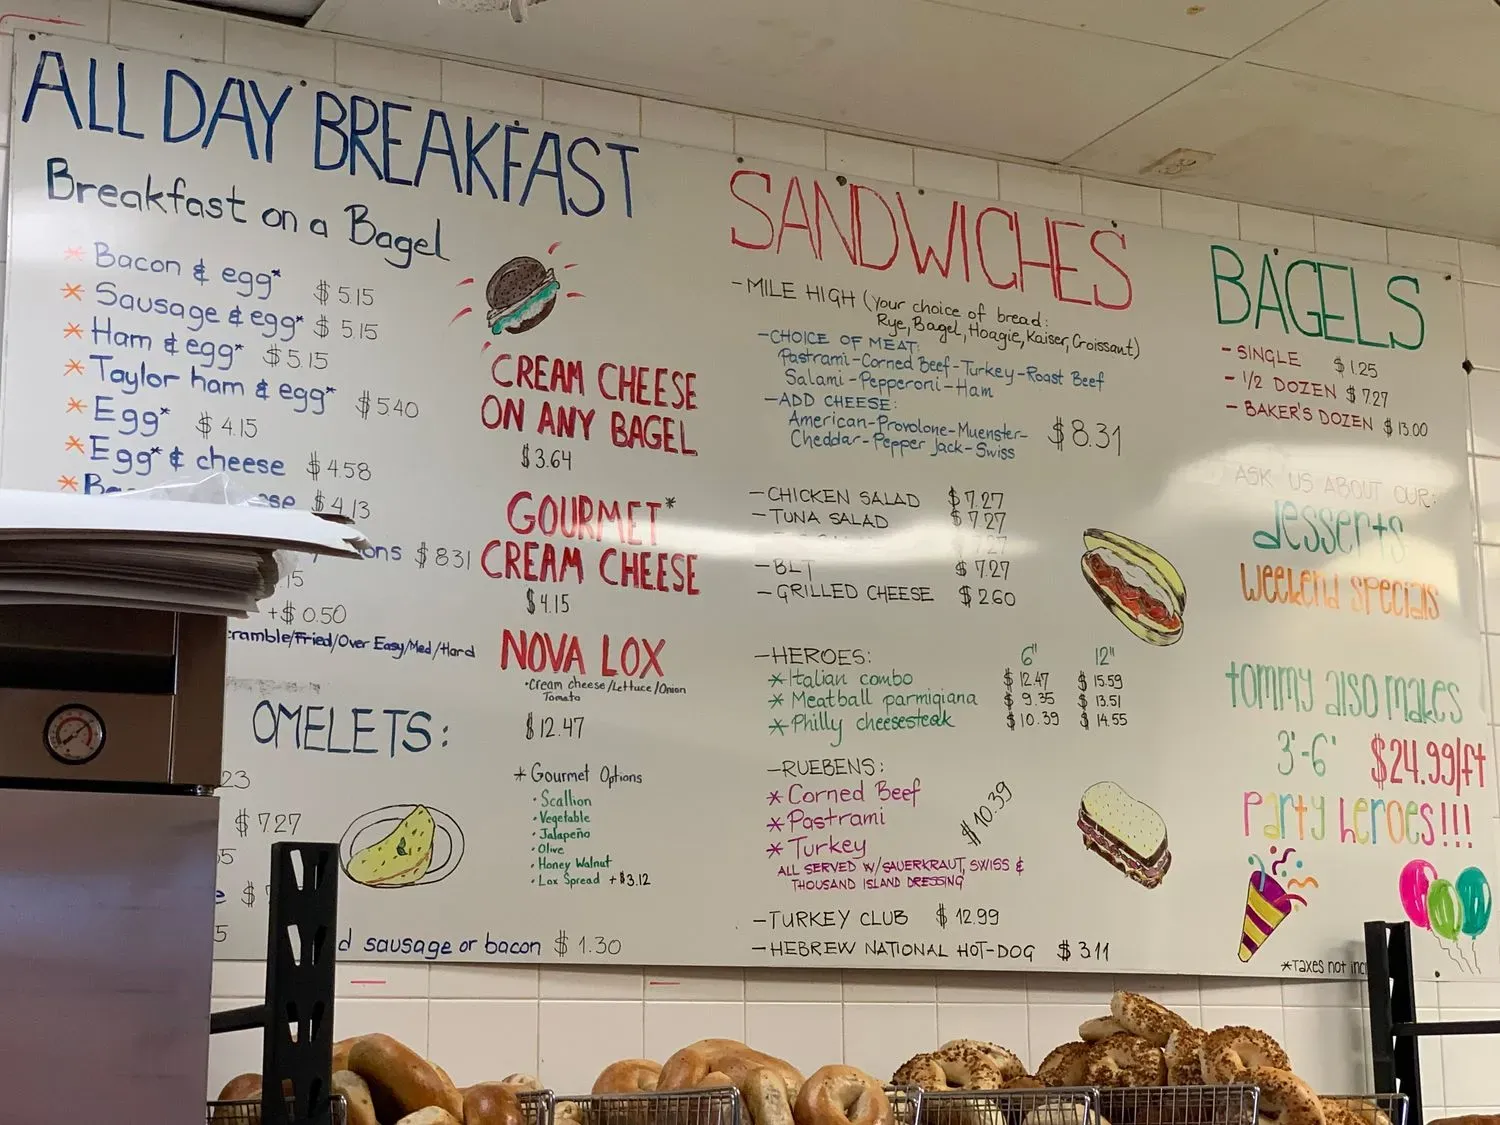 ALL DAY BREAKFAST
Breakfast on a Bagel
* Bacon & egg* $5.15
* Sausage & egg* $5.15
* Ham & egg* $5.15
* Taylor ham & egg* $5.40
* Egg* $4.15
* Egg* & cheese $4.58
* $4.13
$8.31
+$0.50
/Fried/Over Easy/Med/Hard
OMELETS:
$7.27
sausage or bacon $1.30
CREAM CHEESE
ON ANY BAGEL
$3.64
GOURMET*
CREAM CHEESE
$4.15
NOVA LOX
• Cream cheese/Lettuce/Onion
Tomato
$12.47
* Gourmet Options
• Scallion
• Vegetable
• Jalapeño
• Olive
• Honey Walnut
• Lox Spread +$3.12
SANDWICHES
- MILE HIGH (your choice of bread:
Rye, Bagel, Hoagie, Kaiser, Croissant)
- CHOICE OF MEAT:
Pastrami-Corned Beef-Turkey-Roast Beef
Salami-Pepperoni-Ham
- ADD CHEESE:
American-Provolone-Muenster-
Cheddar-Pepper Jack-Swiss
$8.31
- CHICKEN SALAD $7.27
- TUNA SALAD $7.27
- BLT $7.27
- GRILLED CHEESE $2.60
- HEROES: 6" 12"
* Italian combo $12.47 $15.59
* Meatball parmigiana $9.35 $13.51
* Philly cheesesteak $10.39 $14.55
- RUEBENS:
* Corned Beef
* Pastrami
* Turkey
$10.39
ALL SERVED W/SAUERKRAUT, SWISS &
THOUSAND ISLAND DRESSING
- TURKEY CLUB $12.99
- HEBREW NATIONAL HOT-DOG $3.11
BAGELS
- SINGLE $1.25
- 1/2 DOZEN $7.27
- BAKER'S DOZEN $13.00
ASK US ABOUT OUR:
desserts
weekend specials
tommy also makes
3'-6' $24.99/ft
party heroes!!!
*Taxes not